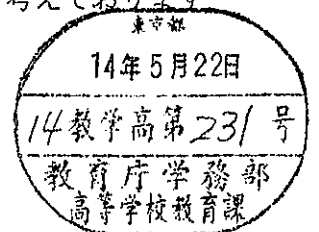 考えております
東京都
14年5月22日
14教学高第231号
教育庁学務部
高等学校教育課